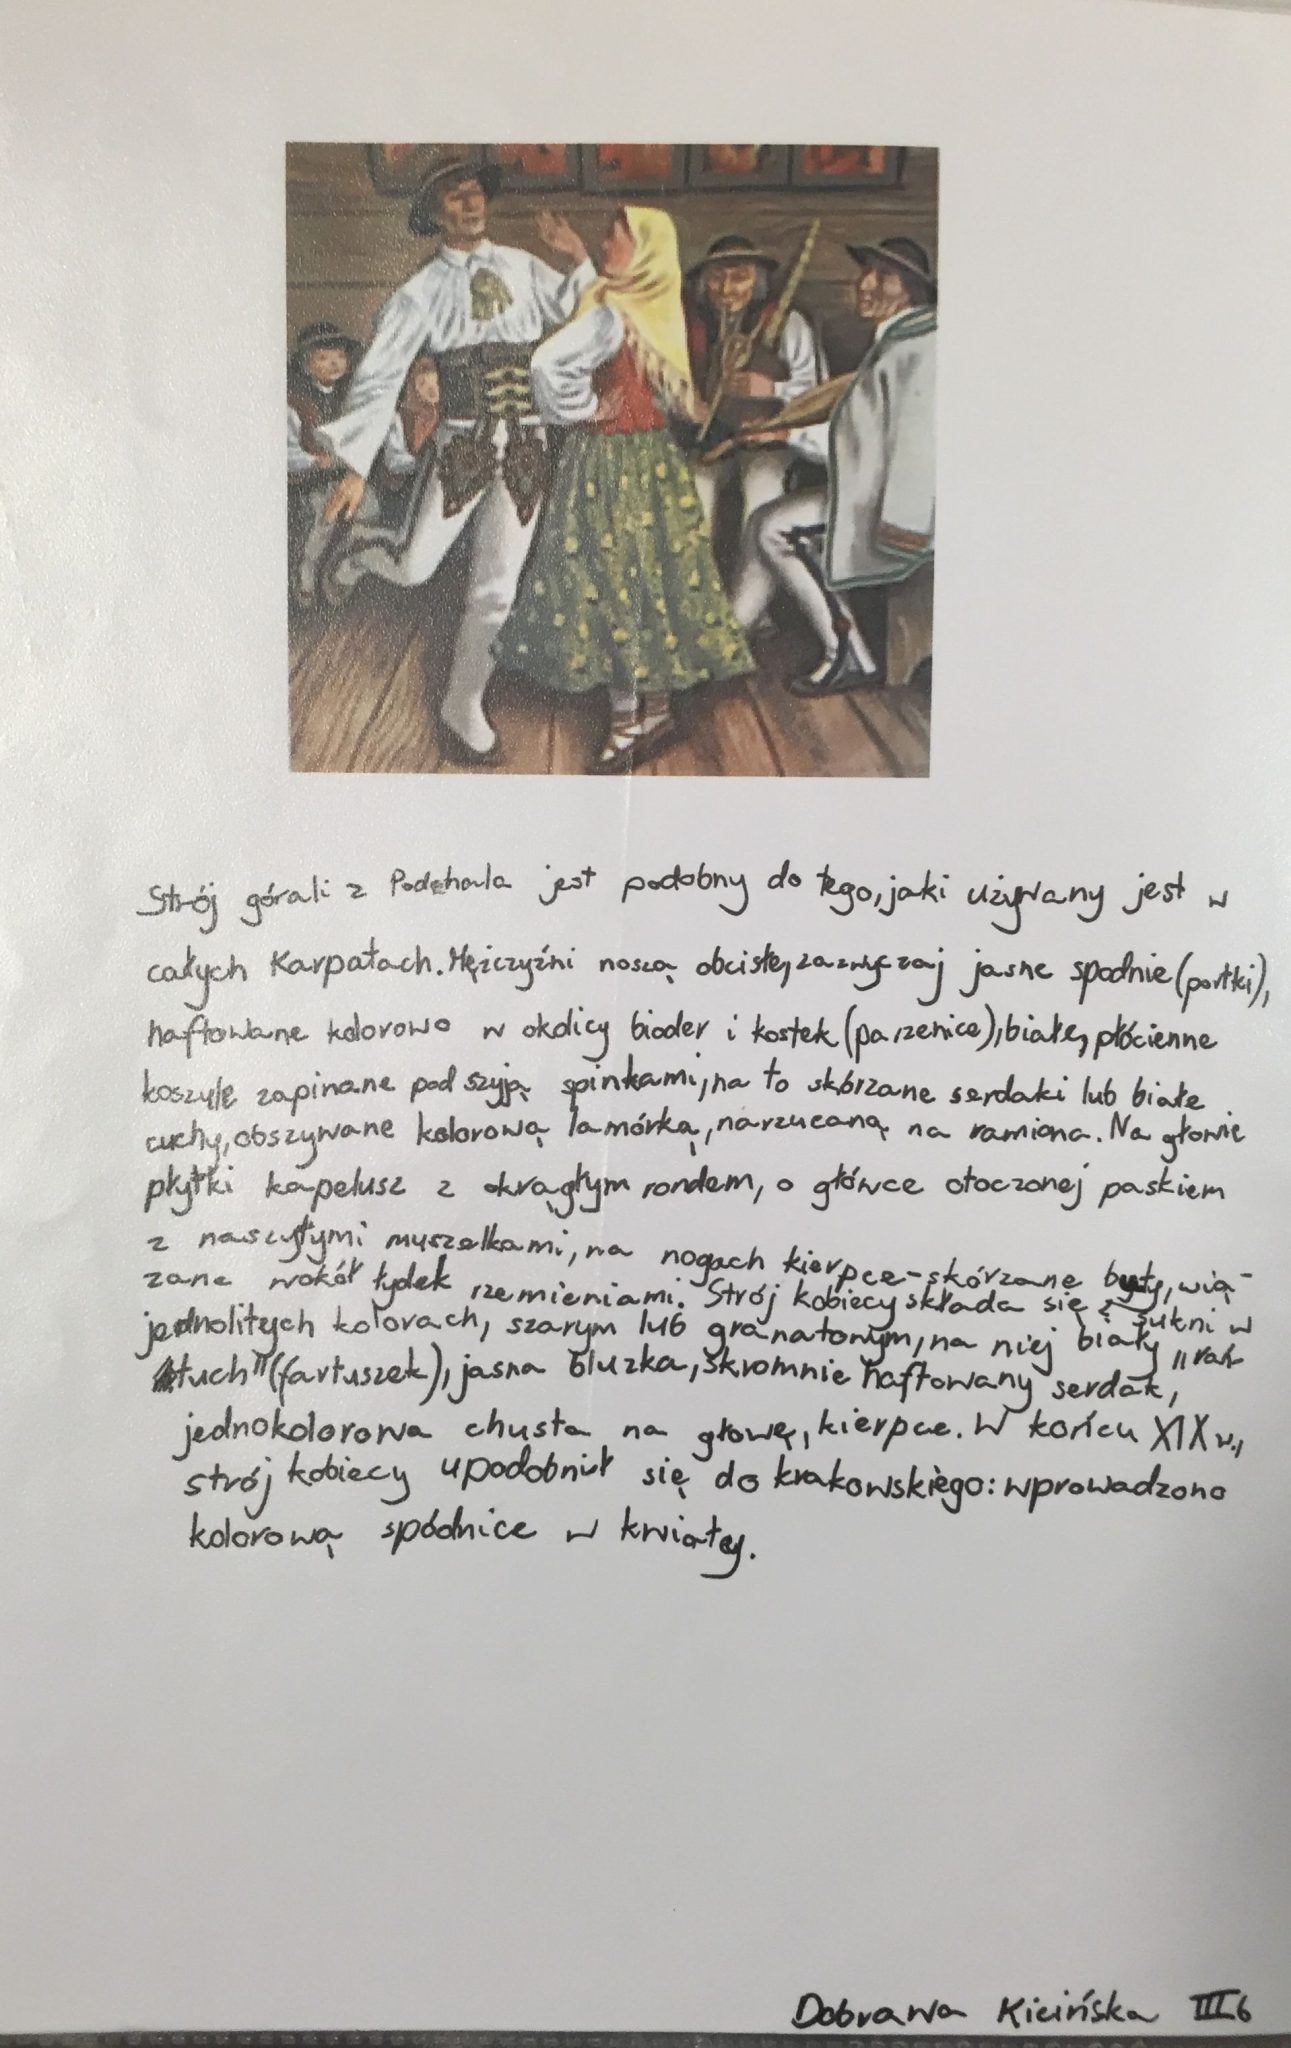 Strój górali z Podchala jest podobny do tego, jaki używany jest w
całych Karpatach. Mężczyźni noszą obcisłe, zazwyczaj jasne spodnie (portki),
haftowane kolorowo w okolicy bioder i kostek (parzenice), białe, płócienne
koszule zapinane pod szyją spinkami, na to skórzane serdaki lub białe
cuchy, obszywane kolorową lamórką, narzucaną na ramiona. Na głowie
płytki kapelusz z okrągłym rondem, o główce otoczonej paskiem
z naszytymi muszelkami, na nogach kierpce - skórzane buty, wią-
zane wokół łydek rzemieniami. Strój kobiecy składa się z sukni w
jednolitych kolorach, szarym lub granatowym, na niej biały "rań
tuch" (fartuszek), jasna bluzka, skromnie haftowany serdak,
jednokolorowa chusta na głowę, kierpce. W końcu XIX w.,
strój kobiecy upodobnił się do krakowskiego: wprowadzono
kolorową spódnice w kwiaty.
Dobrawa Kicińska III b